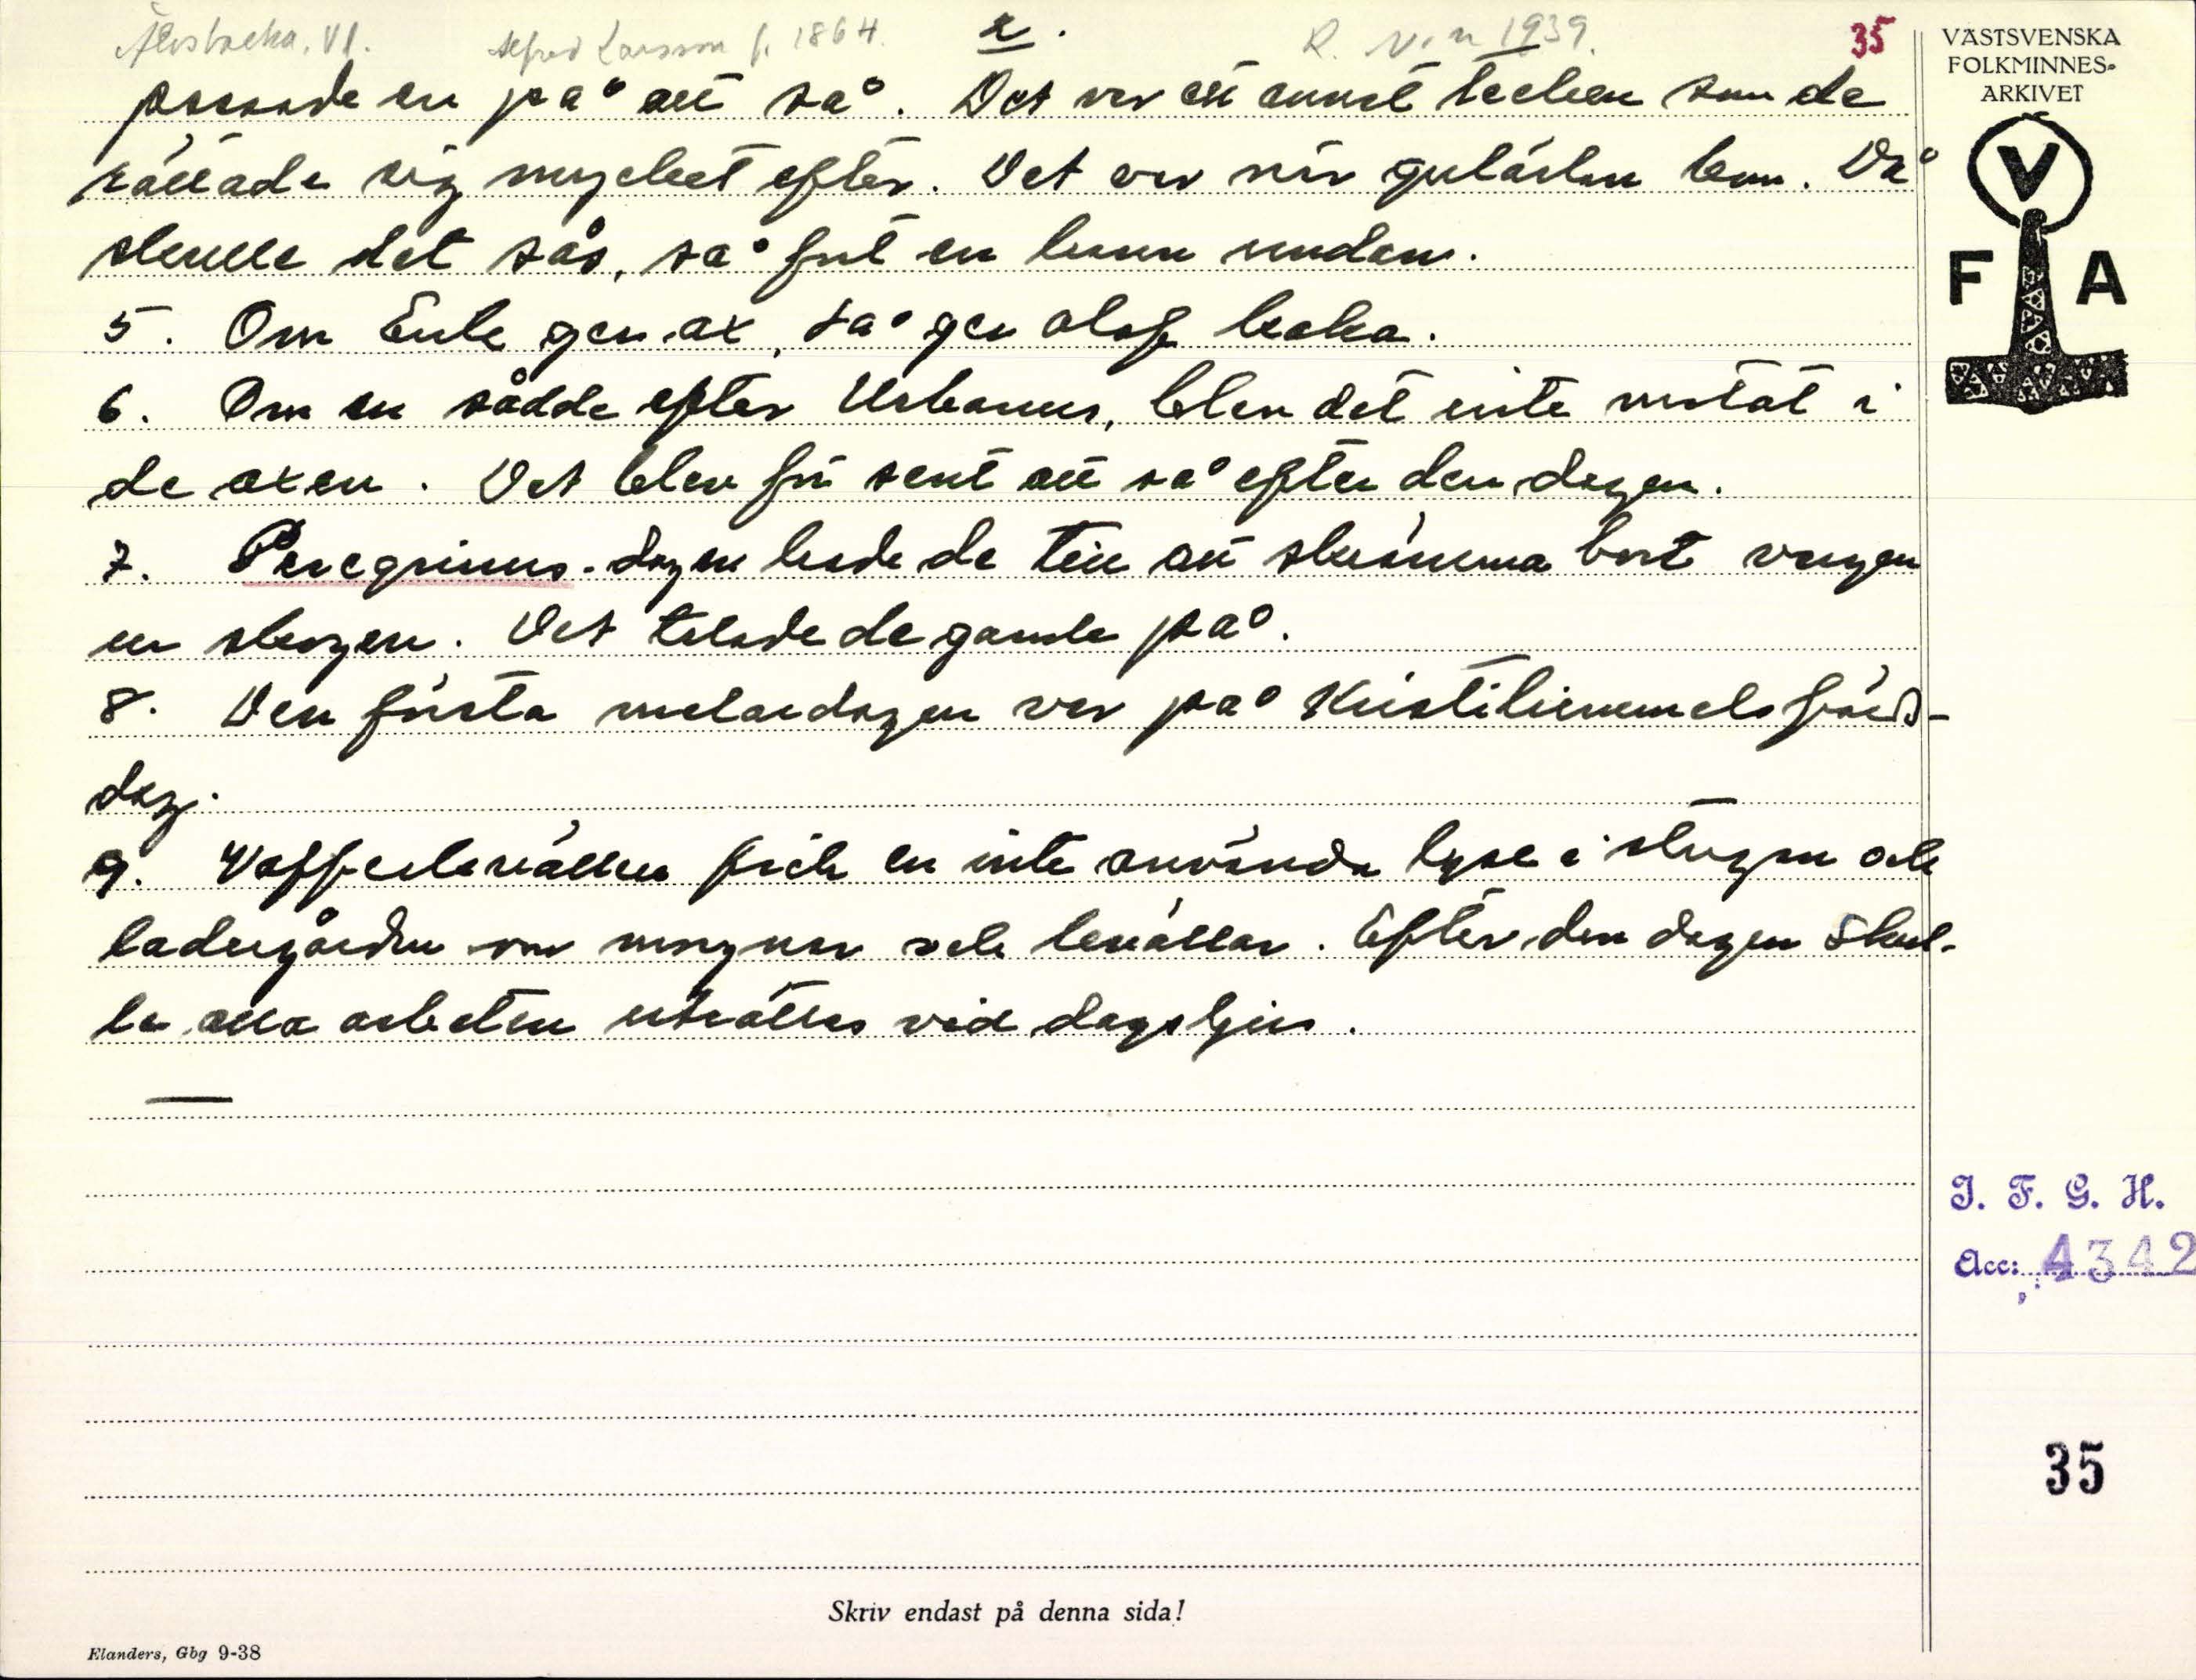 Älvsbacka, Vl. Alfred Larsson f. 1864. 2. R. N-n 1939. 35
passade en på att så. Det var ett annat tecken som de
rättade sig mycket efter. Det var när gulärlan kom. Då
skulle det sås, så fort en kunn undan.
5. Om Erik ger ax, så ger Olof kaka.
6. Om en sådde efter Urbanus, blev det inte matat i
de axen. Det blev för sent att så efter den dagen.
7. Peregrinus-dagen hade de till att skrämma bort vargen
ur skogen. Det talade de gamle på.
8. Den första metaredagen var på Kristihimmelsfärds-
dag.
9. Vaffelekvällen fick en inte använda lyse i stugan och
ladugården om morgnar och kvällar. Efter den dagen skul-
le alla arbeten uträttas vid dagsljus.
VÄSTSVENSKA
FOLKMINNES-
ARKIVET
V
F A
I. F. G. H.
Acc: 4342
35
Skriv endast på denna sida!
Elanders, Gbg 9-38